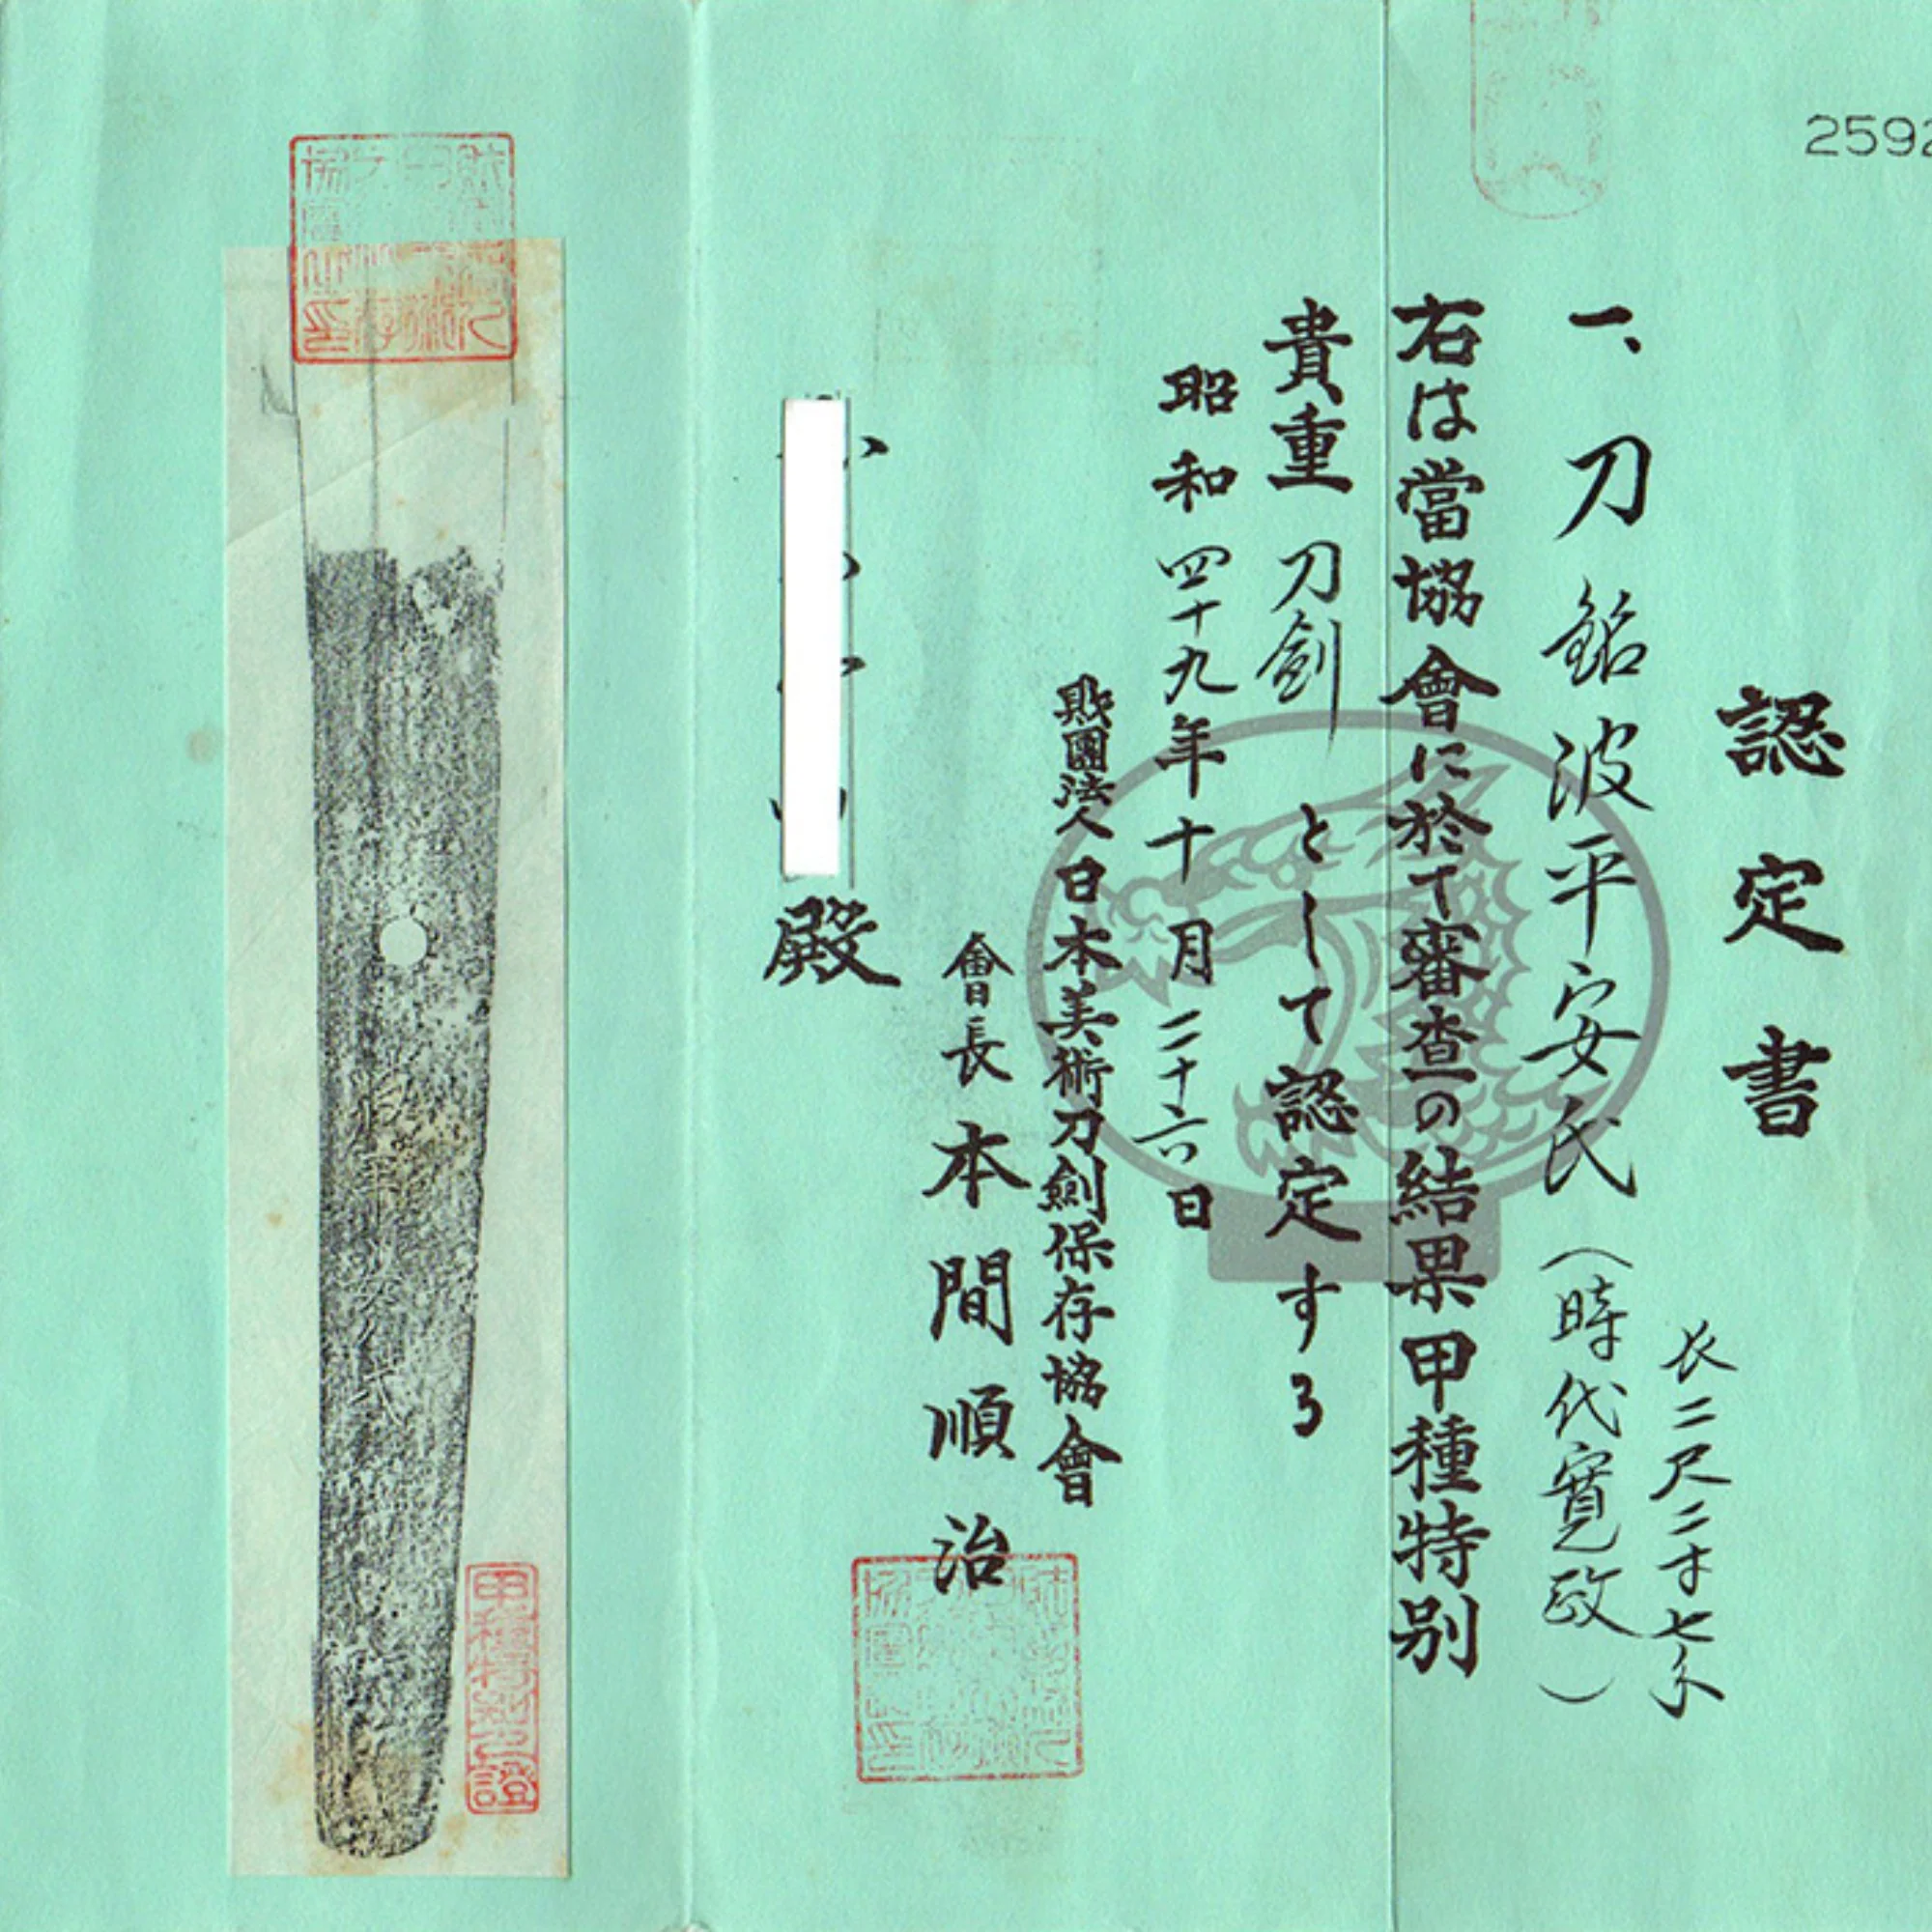 2592
認定書
一、刀 銘 波平安氏(時代寛政)
長二尺二寸七分
右は當協會に於て審査の結果甲種特別
貴重刀劍として認定する
昭和四十九年十月二十六日
財團法人日本美術刀劍保存協會
會長 本間順治
殿
甲種特別之證